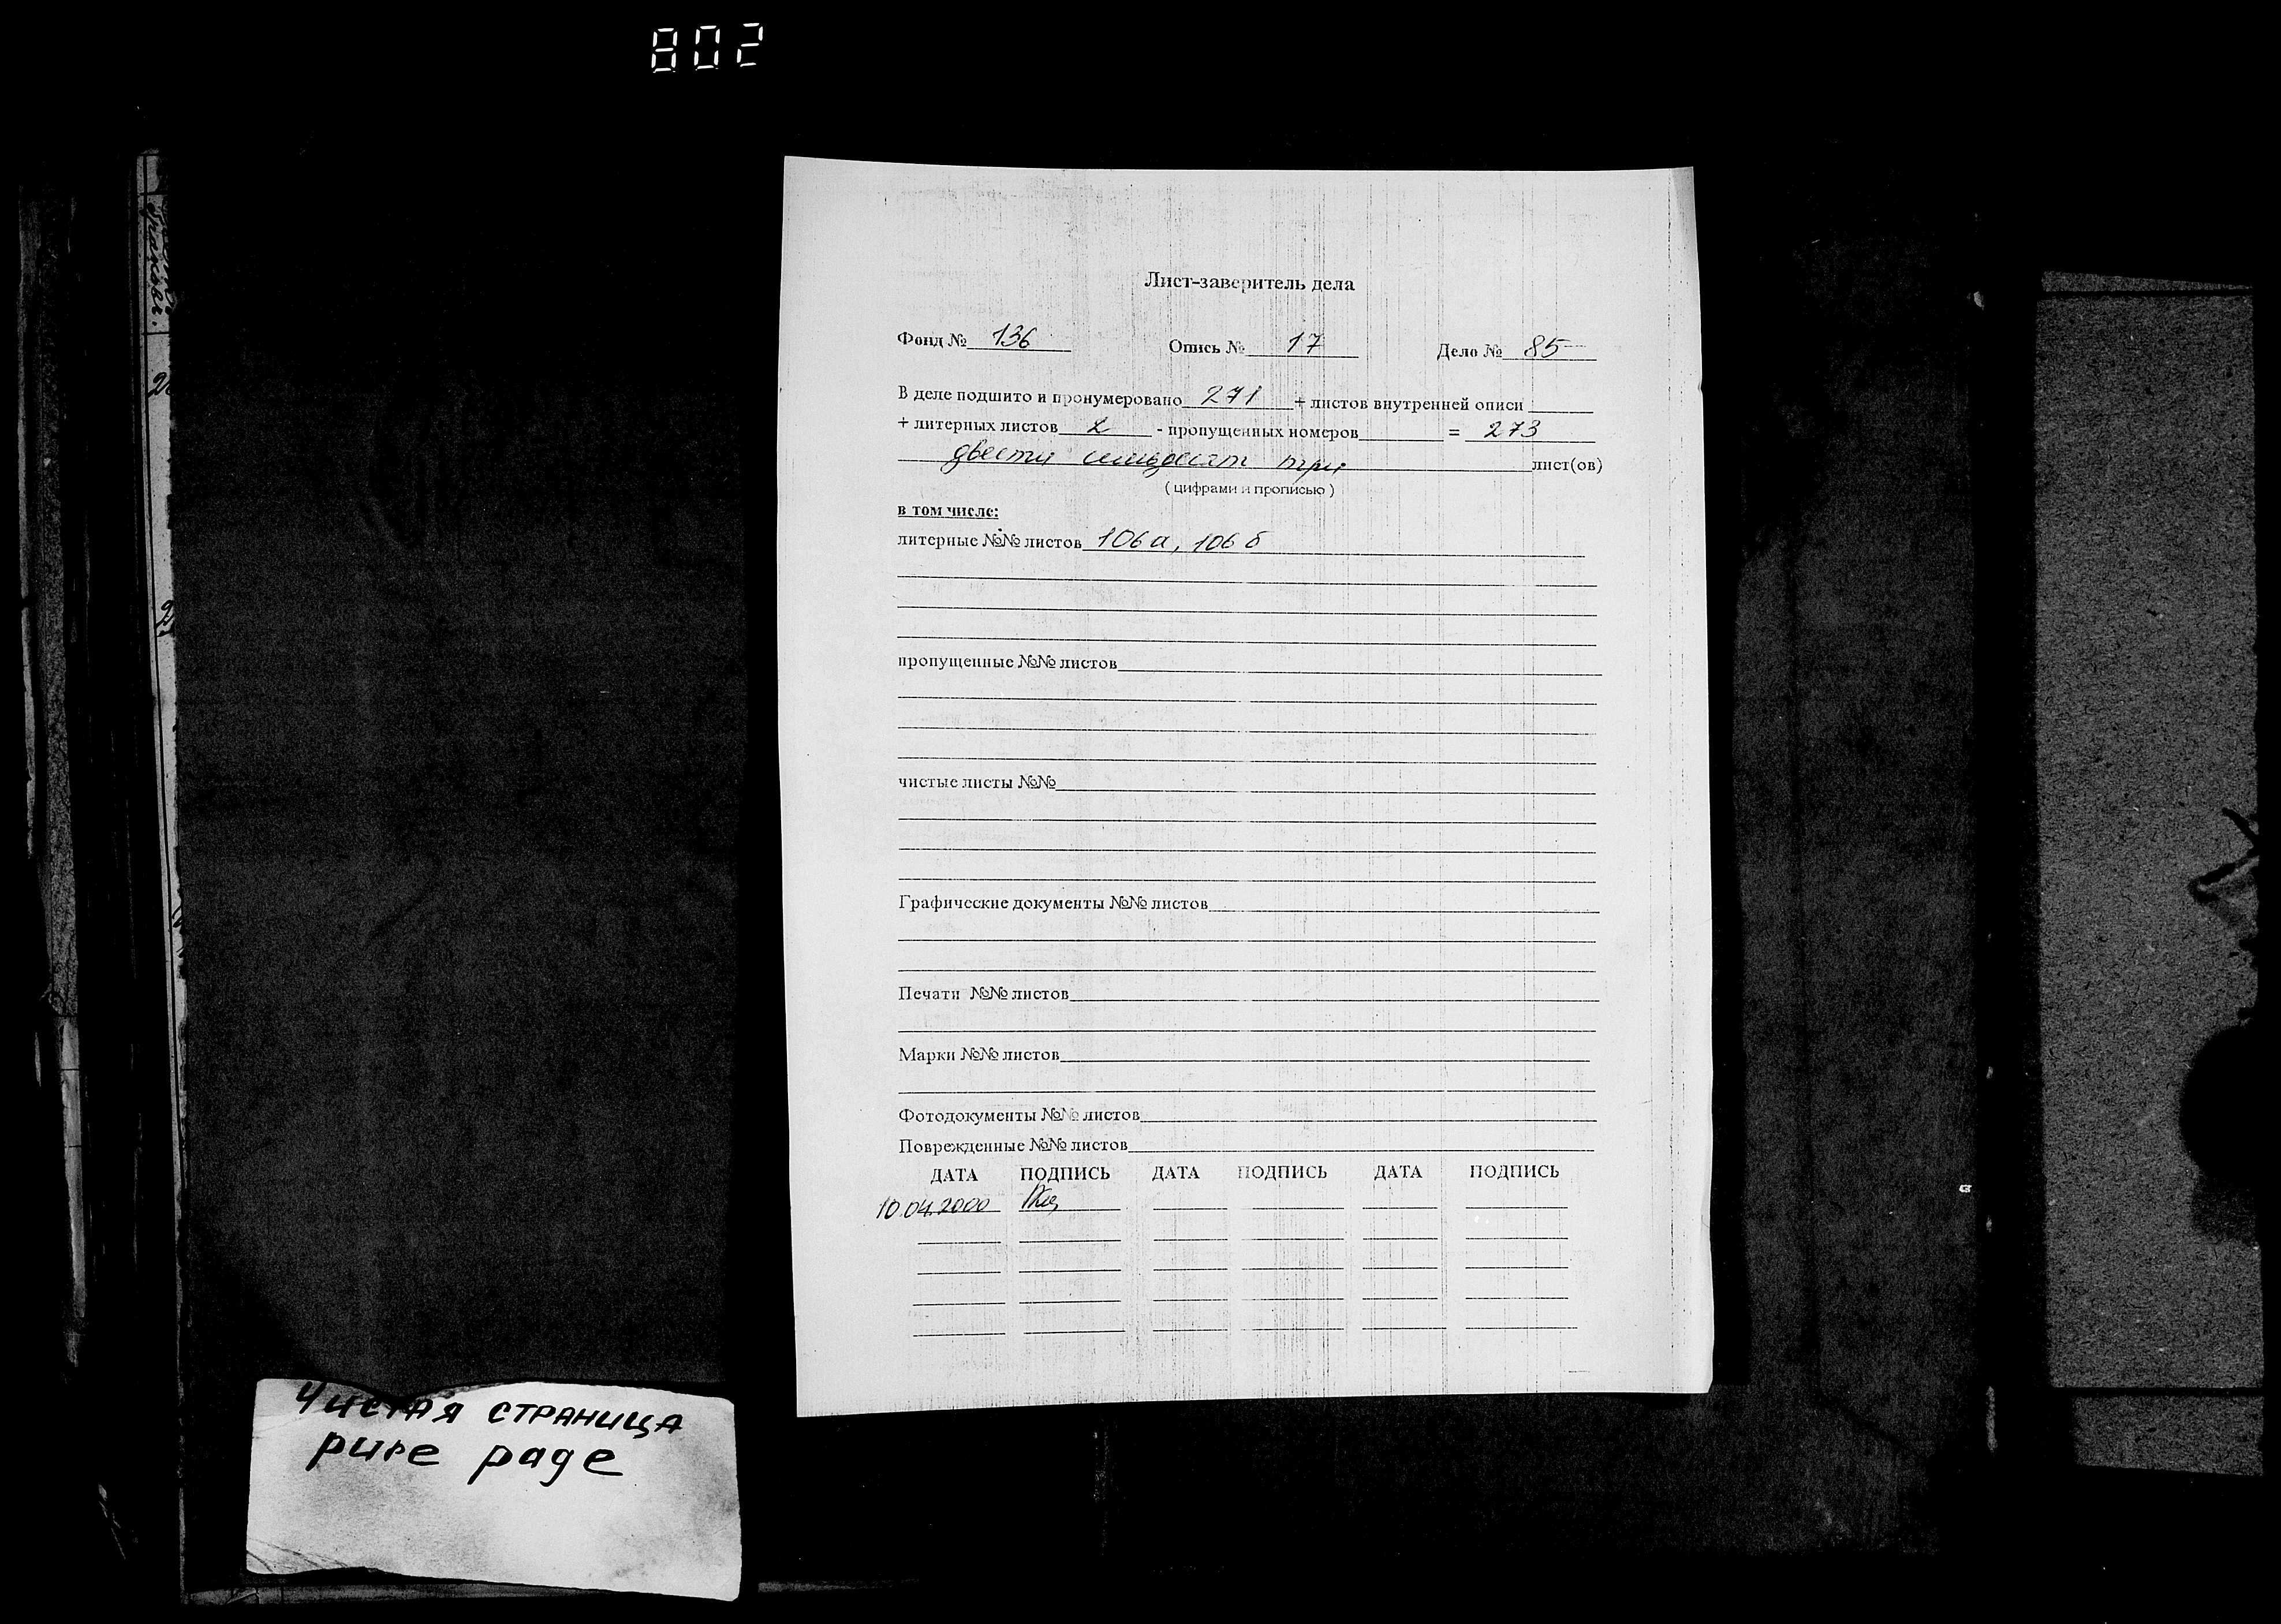 802
Лист-заверитель дела
Фонд № 136 Опись № 17 Дело № 85
В деле подшито и пронумеровано 271 + листов внутренней описи
+ литерных листов 2 - пропущенных номеров = 273
двести семьдесят три лист(ов)
( цифрами и прописью )
в том числе:
литерные №№ листов 106а, 106б
пропущенные №№ листов
чистые листы №№
Графические документы №№ листов
Печати №№ листов
Марки №№ листов
Фотодокументы №№ листов
Поврежденные №№ листов
ДАТА ПОДПИСЬ ДАТА ПОДПИСЬ ДАТА ПОДПИСЬ
10.04.2000
Чистая страница
pure page